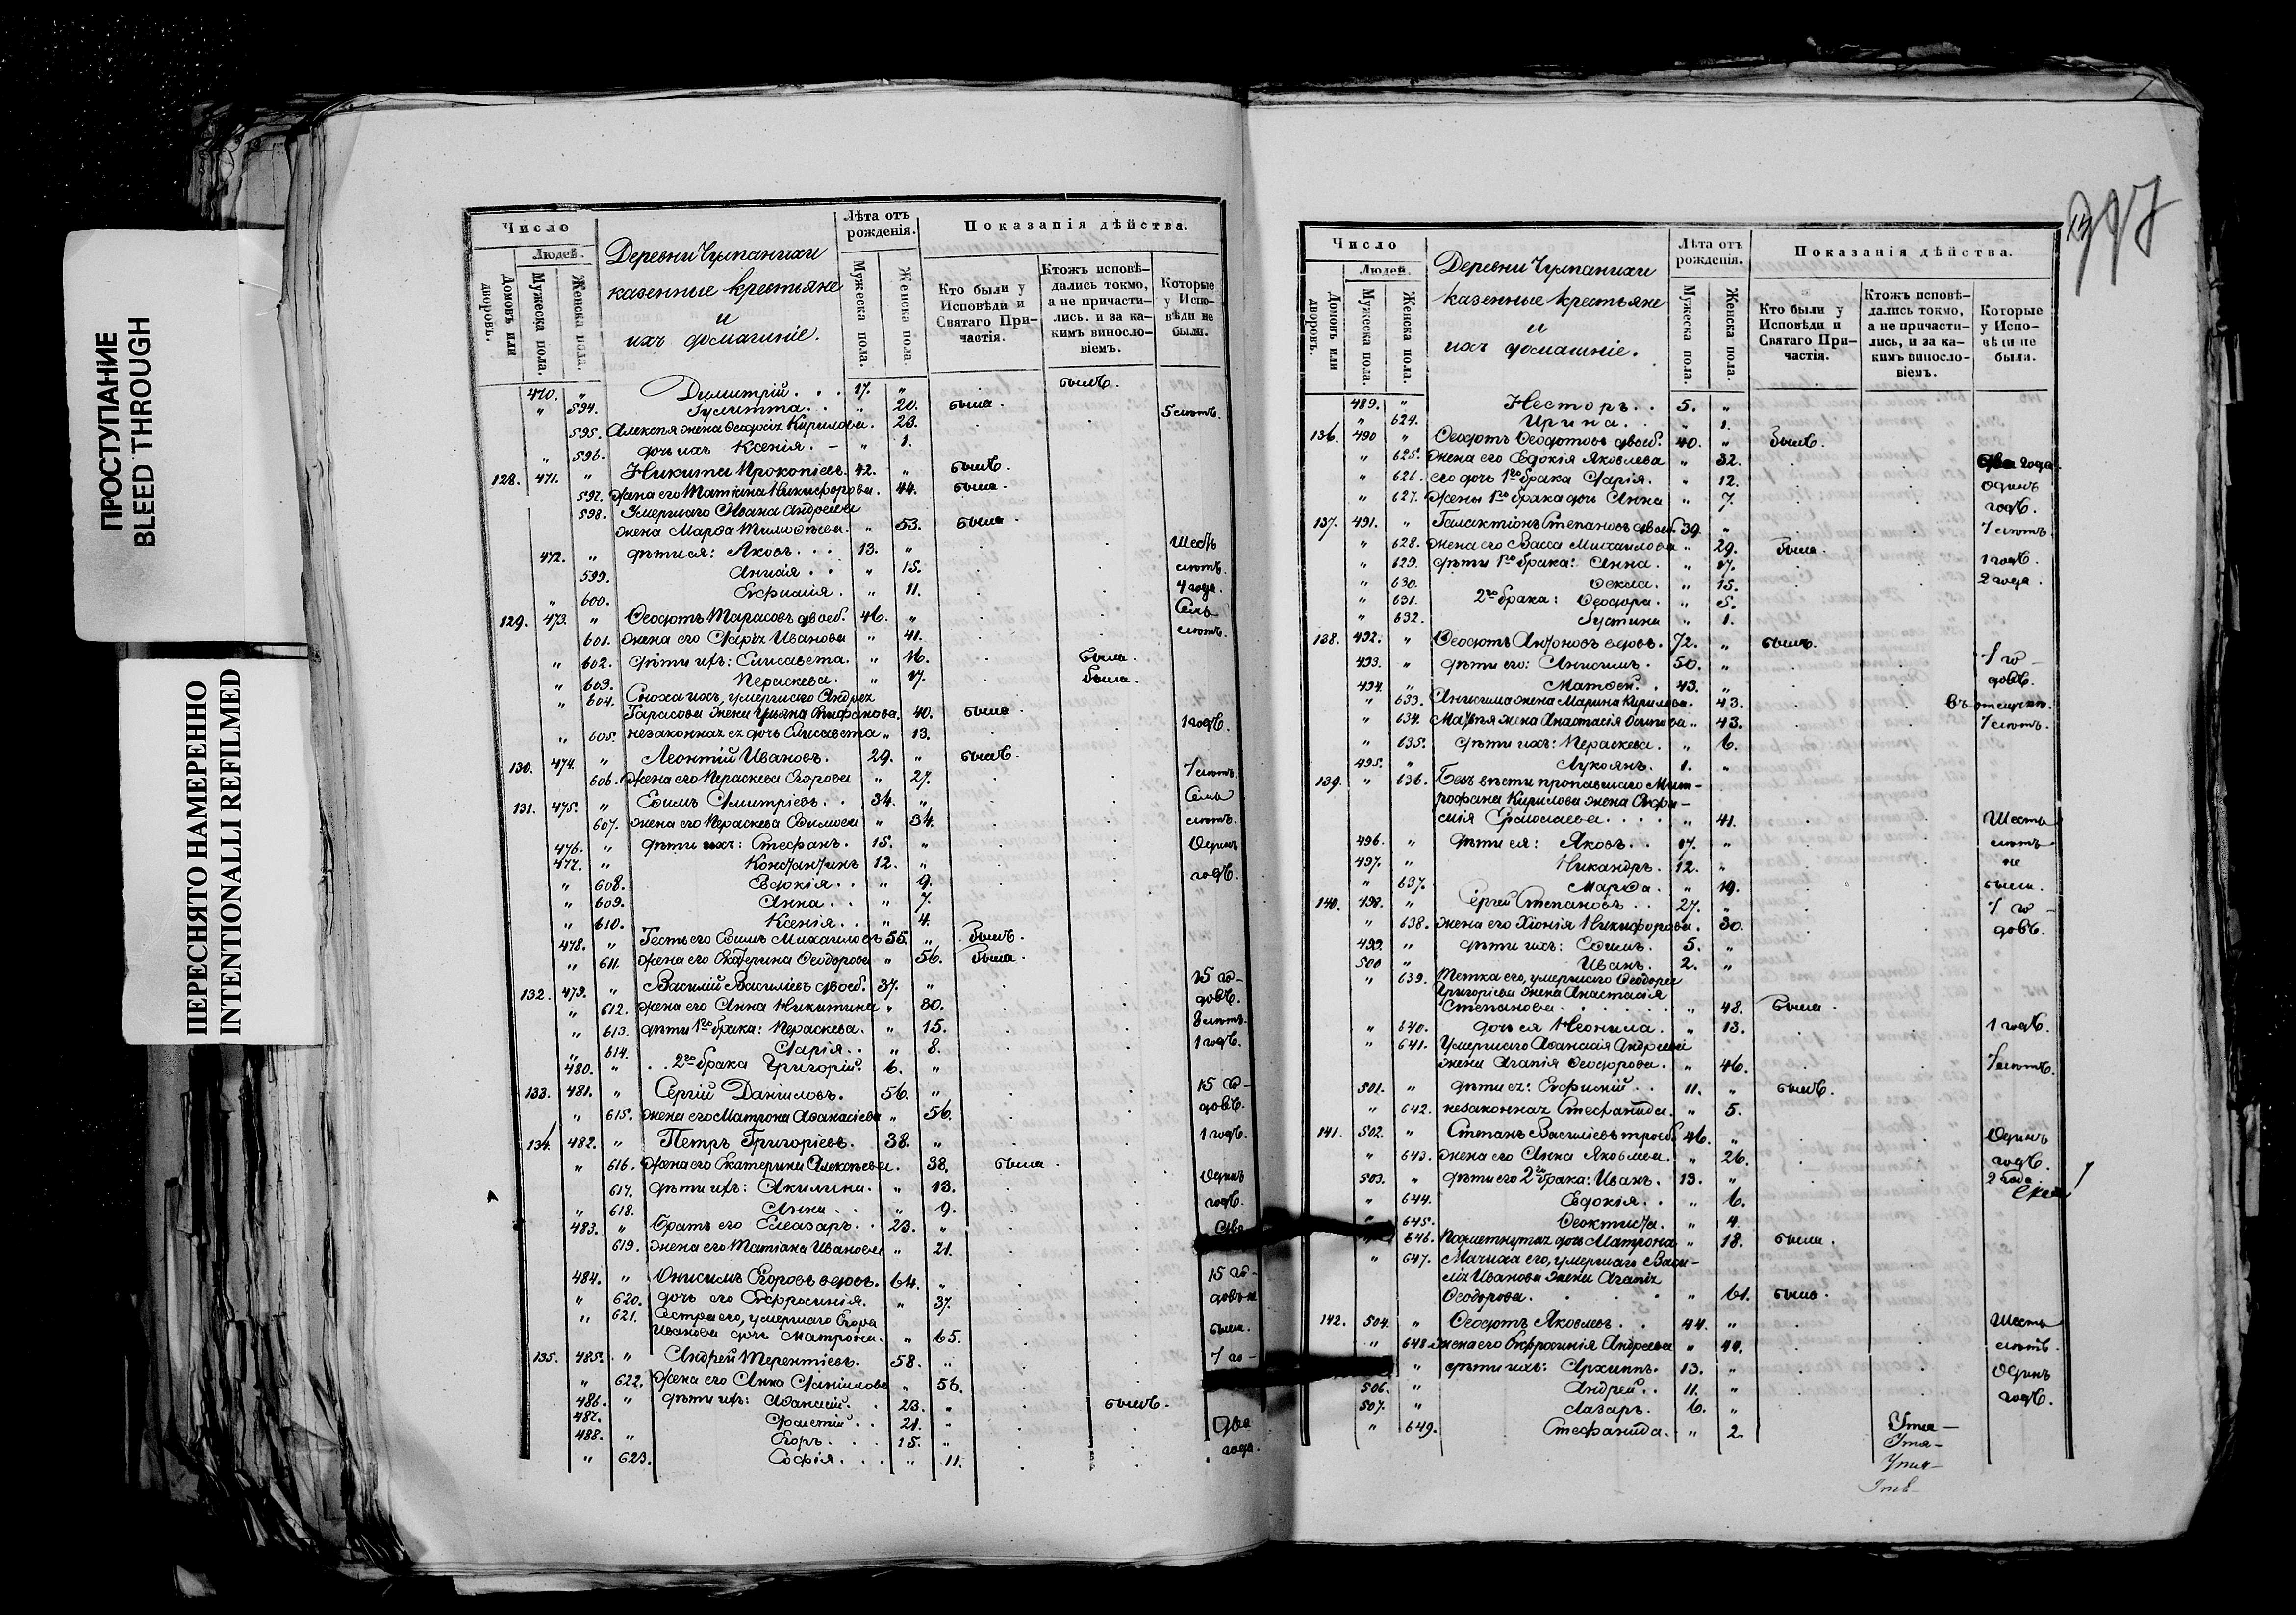 ПРОСТУПАНИЕ
BLEED THROUGH
ПЕРЕСНЯТО НАМЕРЕННО
INTENTIONALLI REFILMED
Число
Людей.
Домовъ или дворовъ.
Мужеска пола.
Женска пола.
Деревни
казенные крестьяне
и
ихъ домашніе.
Лѣта отъ рожденія.
Мужеска пола.
Женска пола.
Показанія дѣйства.
Кто были у Исповѣди и Святаго Причастія.
Ктожъ исповѣдались токмо, а не причастились. и за какимъ винословіемъ.
Которые у Исповѣди не были.
470. " Димитрій . . . 17. " былъ.
" 594. Іулитта . . " 20. была.
595. жена Кирилова. 23. 5 лѣтъ.
" 596. дочь ихъ Ксенія. – " 1.
128. 471. " Никита Прокопіевъ. 42. " былъ.
597. жена его Татіана Никифорова. 44. была.
598. Умершаго Ивана Андреева
жена Марфа Тимофѣева. " 53. была.
472. " дѣти ея: Яковъ. . . 13. " Шесть
599. Анисія . . " 15. лѣтъ.
" 600. Евфимія. " 11. 4 года.
129. 473. " Ѳеодотъ Тарасовъ двоеб. 46. " Семь
601. жена его Марія Иванова " 41. лѣтъ.
" 602. дѣти ихъ: Елисавета. " 16. была.
" 603. Параскева. " 17. была.
" 604. Сноха ихъ, умершаго Андрея
Тарасова жена Ульяна 40. была
" 605. незаконная ея дочь Елисавета " 13. 1 годъ.
130. 474. " Леонтій Ивановъ. 29. " былъ.
606. Жена его Параскева Егорова " 27. 7 лѣтъ.
131. 475. " Ефимъ Димитріевъ. . 34. " Семь
607. жена его Параскева Ефимова " 34. лѣтъ.
476. " дѣти ихъ: Стефанъ. 15. " Одинъ
477. " Константинъ 12. "
" 608. Евдокія . . " 9. годъ.
" 609. Анна . . " 7.
" 610. Ксенія . . " 4.
478. " Тесть его Ефимъ Михаиловъ 55. " былъ.
" 611. жена его Екатерина Ѳеодорова " 56. была.
132. 479. " Василій Василіевъ двоеб. 37. " 15 го-
" 612. жена его Анна Никитина " 30. довъ.
" 613. дѣти 1го брака: Параскева. " 15. 8 лѣтъ.
" 614. Марія. . " 8. 1 годъ.
480. " . . 2го брака Григорій. 6. "
133. 481. " Сергій Даниловъ. 56. " 15 го-
" 615. жена его Матрона Аѳанасіева " 56. довъ.
134. 482. " Петръ Григоріевъ. 38. " 1 годъ.
" 616. жена его Екатерина Алексѣева. 38. была.
617. дѣти ихъ: Акилина. " 13. Одинъ
" 618. Анна . . " 9. годъ.
483. " Братъ его Елеазаръ. . 23. " Два
619. жена его Татіана Иванова " 21.
484. " Онисимъ Егоровъ вдовъ. 64. " 15 го-
" 620. дочь его Евфросинія. " 37. довъ не
" 621. Сестра его, умершаго Егора
Иванова дочь Матрона. " 65. была.
135. 485. " Андрей Терентіевъ. 58. " 7 го-
" 622. жена его Анна Даніилова " 56.
486. " дѣти ихъ: Аѳанасій. . 23. " былъ.
487. . . 21. " Два
488. " Егоръ. . . 15. " года.
" 623. Софія. . . " 11.
Число
Людей.
Домовъ или дворовъ.
Мужеска пола.
Женска пола.
Деревни
казенные крестьяне
и
ихъ домашніе.
Лѣта отъ рожденія.
Мужеска пола.
Женска пола.
Показанія дѣйства.
Кто были у Исповѣди и Святаго Причастія.
Ктожъ исповѣдались токмо, а не причастились, и за какимъ винословіемъ.
Которые у Исповѣди не были.
489. " Несторъ. . 5. "
" 624. Ирина. . " 1.
136. 490 " Ѳеодотъ Ѳеодотовъ двоеб. 40. " былъ.
" 625. жена его Евдокія Яковлева " 32. года.
" 626. его дочь 1го брака Марія. " 12. Одинъ
" 627. жены 1го брака дочь Анна " 7. годъ.
137. 491. " Галактіонъ Степановъ двоеб. 39. " 7 лѣтъ
" 628. жена его Васса Михаилова " 29. была.
" 629. дѣти 1го брака: Анна. " 17. 1 годъ.
" 630. Ѳекла. " 15. 2 года.
" 631. 2го брака: Ѳеодора. " 5.
" 632. Іустина " 1.
138. 492. " Ѳеодотъ Антоновъ вдовъ. 72. " былъ.
493. " дѣти его: Анисимъ. 50. " 7 го-
494. " Матѳей. . 43. " довъ.
" 633. Анисима жена Марина Кирилова. 43. въ отлучкѣ.
" 634. Матѳея жена Анастасія Осипова " 43. 7 лѣтъ.
" 635. дѣти ихъ: Параскева. " 6.
495. " Лукіянъ. 1. "
139. " 636. Безъ вѣсти пропавшаго Мит-
рофана Кирилова жена Евфи-
мія Ермолаева. . . . " 41. Шесть
496. " дѣти ея: Яковъ. . 17. " лѣтъ
497. " Никандръ. 12. " не
" 637. Марфа. " 19. были.
140. 498. " Сергей Степановъ . . 27. " 7 го-
" 638. жена его Хіонія Никифорова. 30. довъ.
499. " дѣти ихъ: Ефимъ. 5. "
500 " Иванъ. 2. "
" 639. Тетка его, умершаго Ѳеодора
Григоріева жена Анастасія
Степанова . . . . " 48. была.
" 640. дочь ея Неонила. " 13. 1 годъ.
" 641. Умершаго Аѳанасія Андреева
жена Агапія Ѳеодорова. " 46. 7 лѣтъ.
501. " дѣти ея: Евфимій . . 11. " былъ.
" 642. незаконная Стефанида. " 5.
141. 502. " Степанъ Василіевъ троеб. 46. " Одинъ
" 643. жена его Анна Яковлева. " 26. годъ.
503. " дѣти его 2го брака: Иванъ. 13. " 2 года.
" 644. Евдокія. . " 6.
645. Ѳеоктиста. " 4.
646. Подметнутая дочь Матрона " 18. была.
" 647. Мачиха его, умершаго Васи-
лія Иванова жена Агапія
Ѳеодорова. . . . " 61. была.
142. 504. " Ѳеодотъ Яковлевъ . . 44. " Шесть
" 648. жена его Евфросинія Андреева " 41. лѣтъ.
" дѣти ихъ: Архиппъ. 13. " Одинъ
506. " Андрей. . 11. " годъ.
507. " Лазарь. 6. "
" 649. Стефанида. " 2.